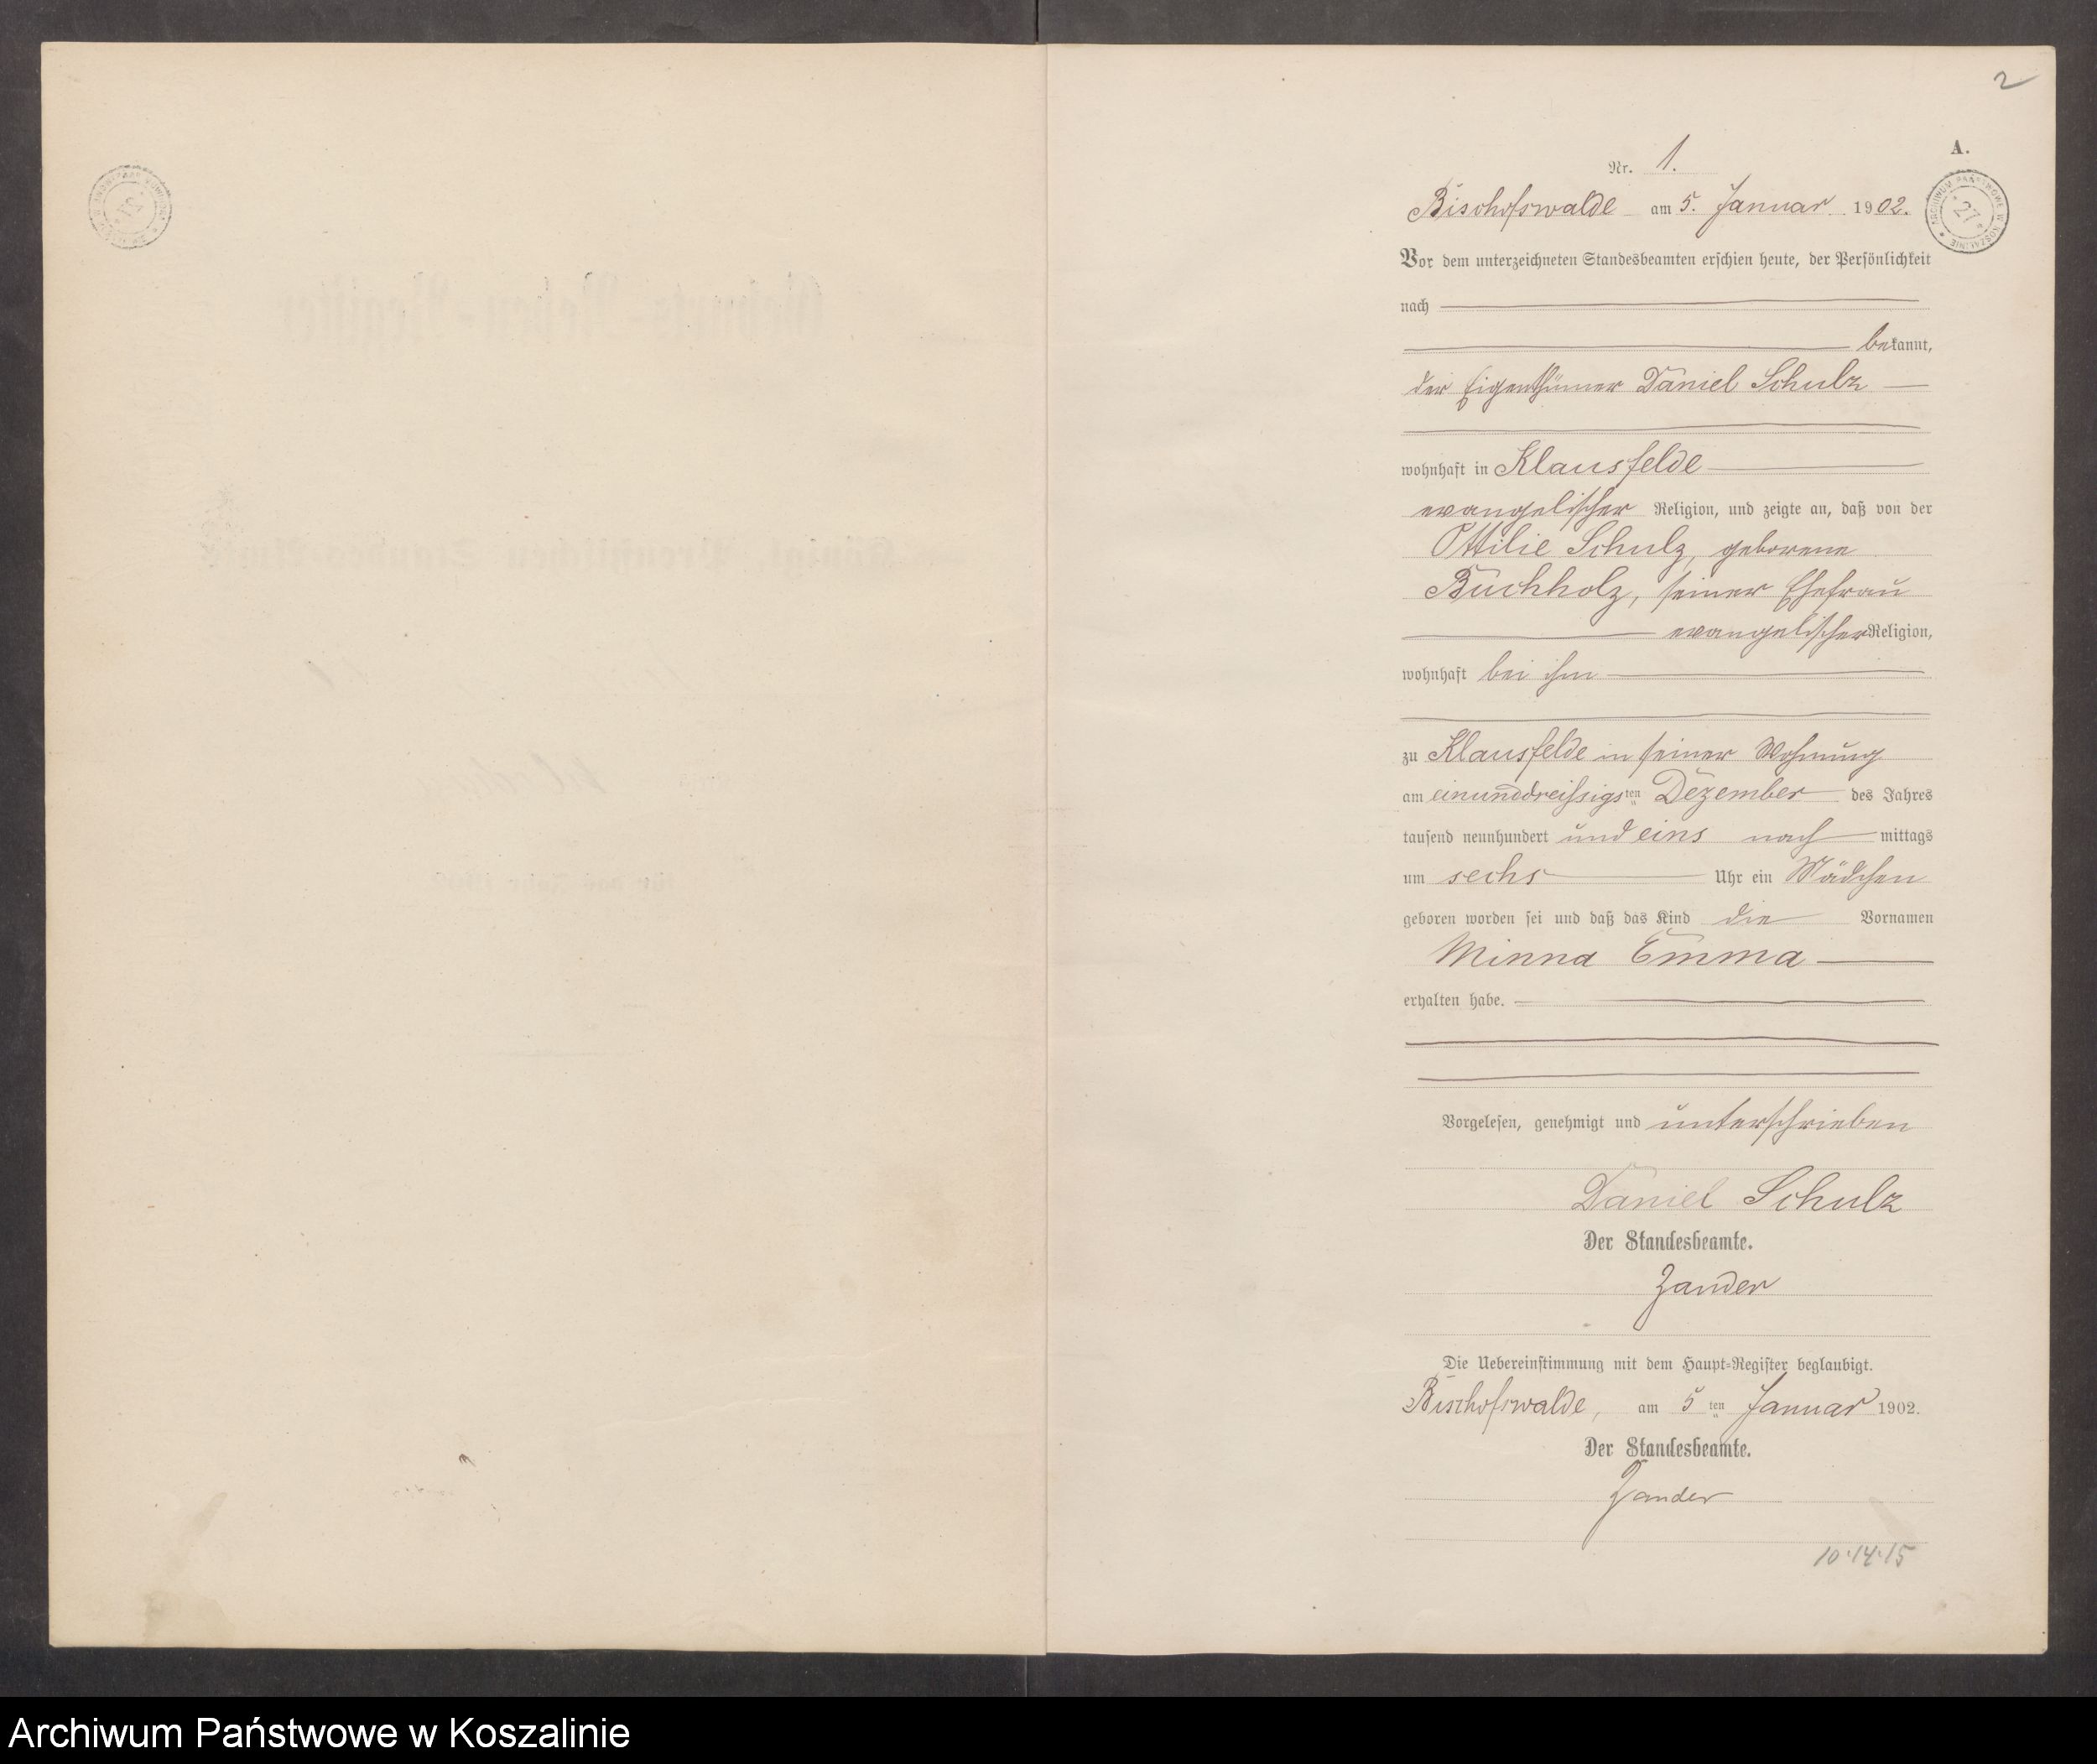 2
A.
Nr. 1.
Bischofswalde am 5. Januar 1902.
ARCHIWUM PAŃSTWOWE W KOSZALINIE
27
Vor dem unterzeichneten Standesbeamten erschien heute, der Persönlichkeit
nach
bekannt,
der Eigenthümer Daniel Schulz
wohnhaft in Klausfelde
evangelischer Religion, und zeigte an, daß von der
Ottilie Schulz, geborene
Buchholz, seiner Ehefrau
evangelischer Religion,
wohnhaft bei ihm
zu Klausfelde in seiner Wohnung
am einunddreißigsten Dezember des Jahres
tausend neunhundert und eins nachmittags
um sechs Uhr ein Mädchen
geboren worden sei und daß das Kind die Vornamen
Minna Emma
erhalten habe.
Vorgelesen, genehmigt und unterschrieben
Daniel Schulz
Der Standesbeamte.
Zander
Die Uebereinstimmung mit dem Haupt-Register beglaubigt.
Bischofswalde, am 5ten Januar 1902.
Der Standesbeamte.
Zander
10.14.15
Archiwum Państwowe w Koszalinie